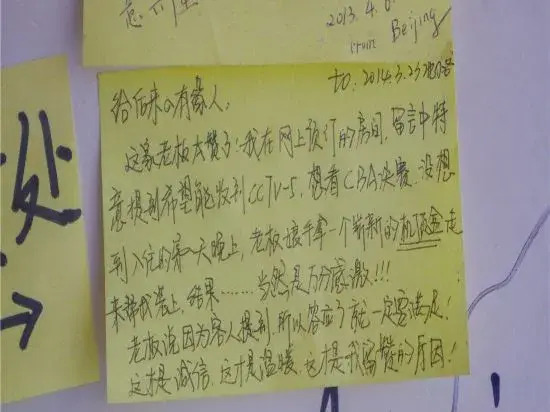 2013.4.0
from Beijing
处
to: 2014.3.25
给后来の有缘人:
这家老板太赞了!我在网上预订的房间,留言中特
意提到希望能收到CCTV-5,想看CBA决赛,没想
到入住的第一天晚上,老板拿一个崭新的机顶盒走
来帮我装上,结果……当然是万分感激!!!
老板说因为客人提到,所以答应了就一定要满足!
这才是诚信,这才是温暖,这才是我留赞的原因!